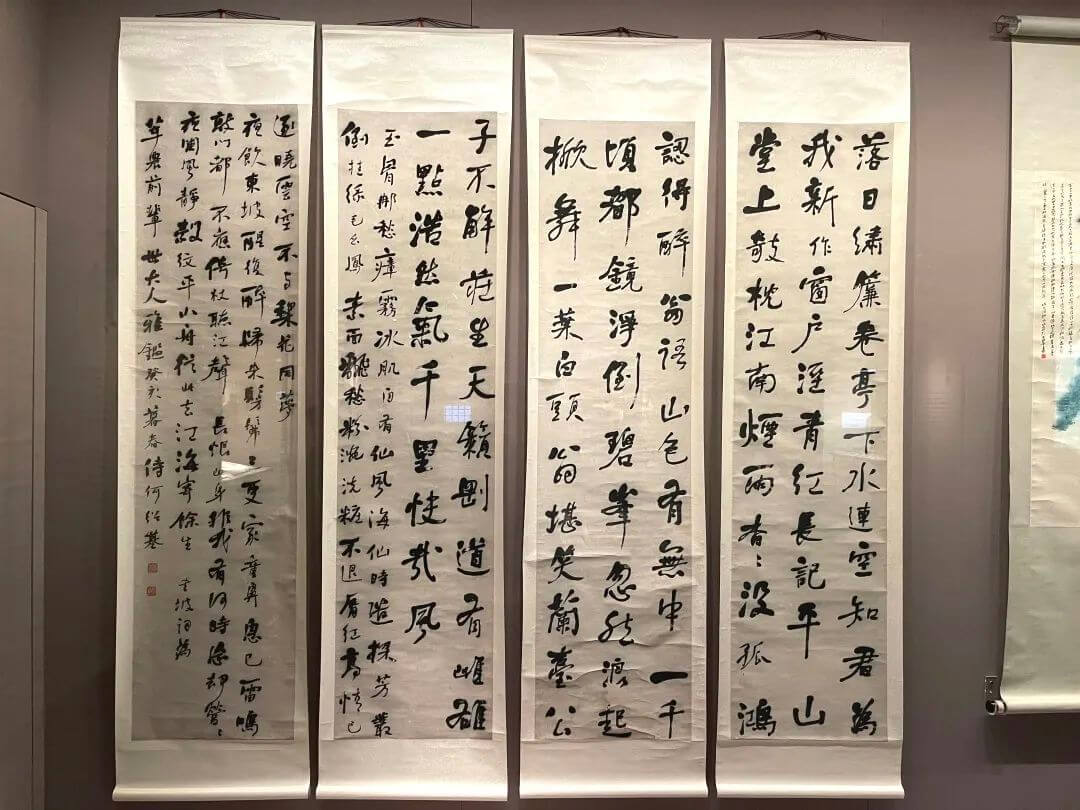 落日繡簾卷亭下水連空知君為
我新作窗戶溼青紅長記平山
堂上攲枕江南煙雨杳〻沒孤鴻
認得醉翁語山色有無中一千
頃都鏡淨倒碧峯忽然浪起
掀舞一葉白頭翁堪笑蘭臺公
子不解莊生天籟剛道有雌雄
一點浩然氣千里快哉風
玉骨那愁瘴霧冰肌自有仙風海仙時遣探芳叢
倒挂綠毛么鳳 素面翻愁粉涴洗粧不退唇紅高情已
逐曉雲空不與棃花同夢
夜飲東坡醒復醉歸來髣髴三更家童鼻息已雷鳴
敲門都不應倚杖聽江聲 長恨此身非我有何時忘却營〻
夜闌風靜縠紋平小舟從此去江海寄餘生 東坡詞為
莘農前輩世大人雅鑑癸亥暮春侍何紹基